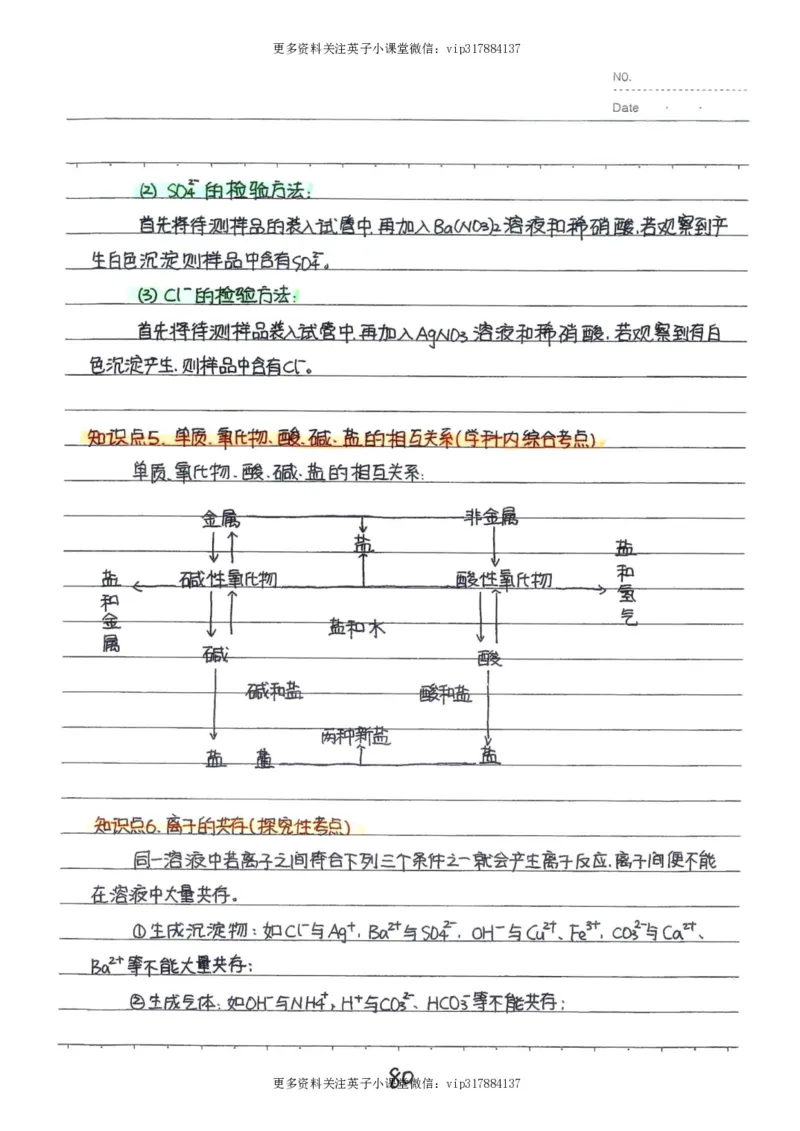 更多资料关注英子小课堂微信：vip317884137
NO.
Date · ·
(2) SO₄²⁻ 的检验方法：
首先将待测样品的装入试管中,再加入Ba(NO3)2溶液和稀硝酸,若观察到产
生白色沉淀则样品中含有SO₄²⁻。
(3) Cl⁻的检验方法：
首先将待测样品装入试管中,再加入AgNO3溶液和稀硝酸,若观察到有白
色沉淀产生,则样品中含有Cl⁻。
知识点5.单质.氧化物、酸.碱、盐的相互关系(学科内综合考点)
单质、氧化物.酸.碱、盐的相互关系：
金属 非金属
盐
盐和金属 碱性氧化物 酸性氧化物 盐和氢气
盐和水
碱 酸
碱和盐 酸和盐
两种新盐
盐 盐 盐
知识点6.离子的共存(探究性考点)
同一溶液中若离子之间符合下列三个条件之一就会产生离子反应.离子间便不能
在溶液中大量共存。
①生成沉淀物：如Cl⁻与Ag⁺，Ba²⁺与SO₄²⁻，OH⁻与Cu²⁺、Fe³⁺，CO₃²⁻与Ca²⁺、
Ba²⁺等不能大量共存；
②生成气体：如OH⁻与NH₄⁺，H⁺与CO₃²⁻、HCO₃⁻等不能共存；
80
更多资料关注英子小课堂微信：vip317884137